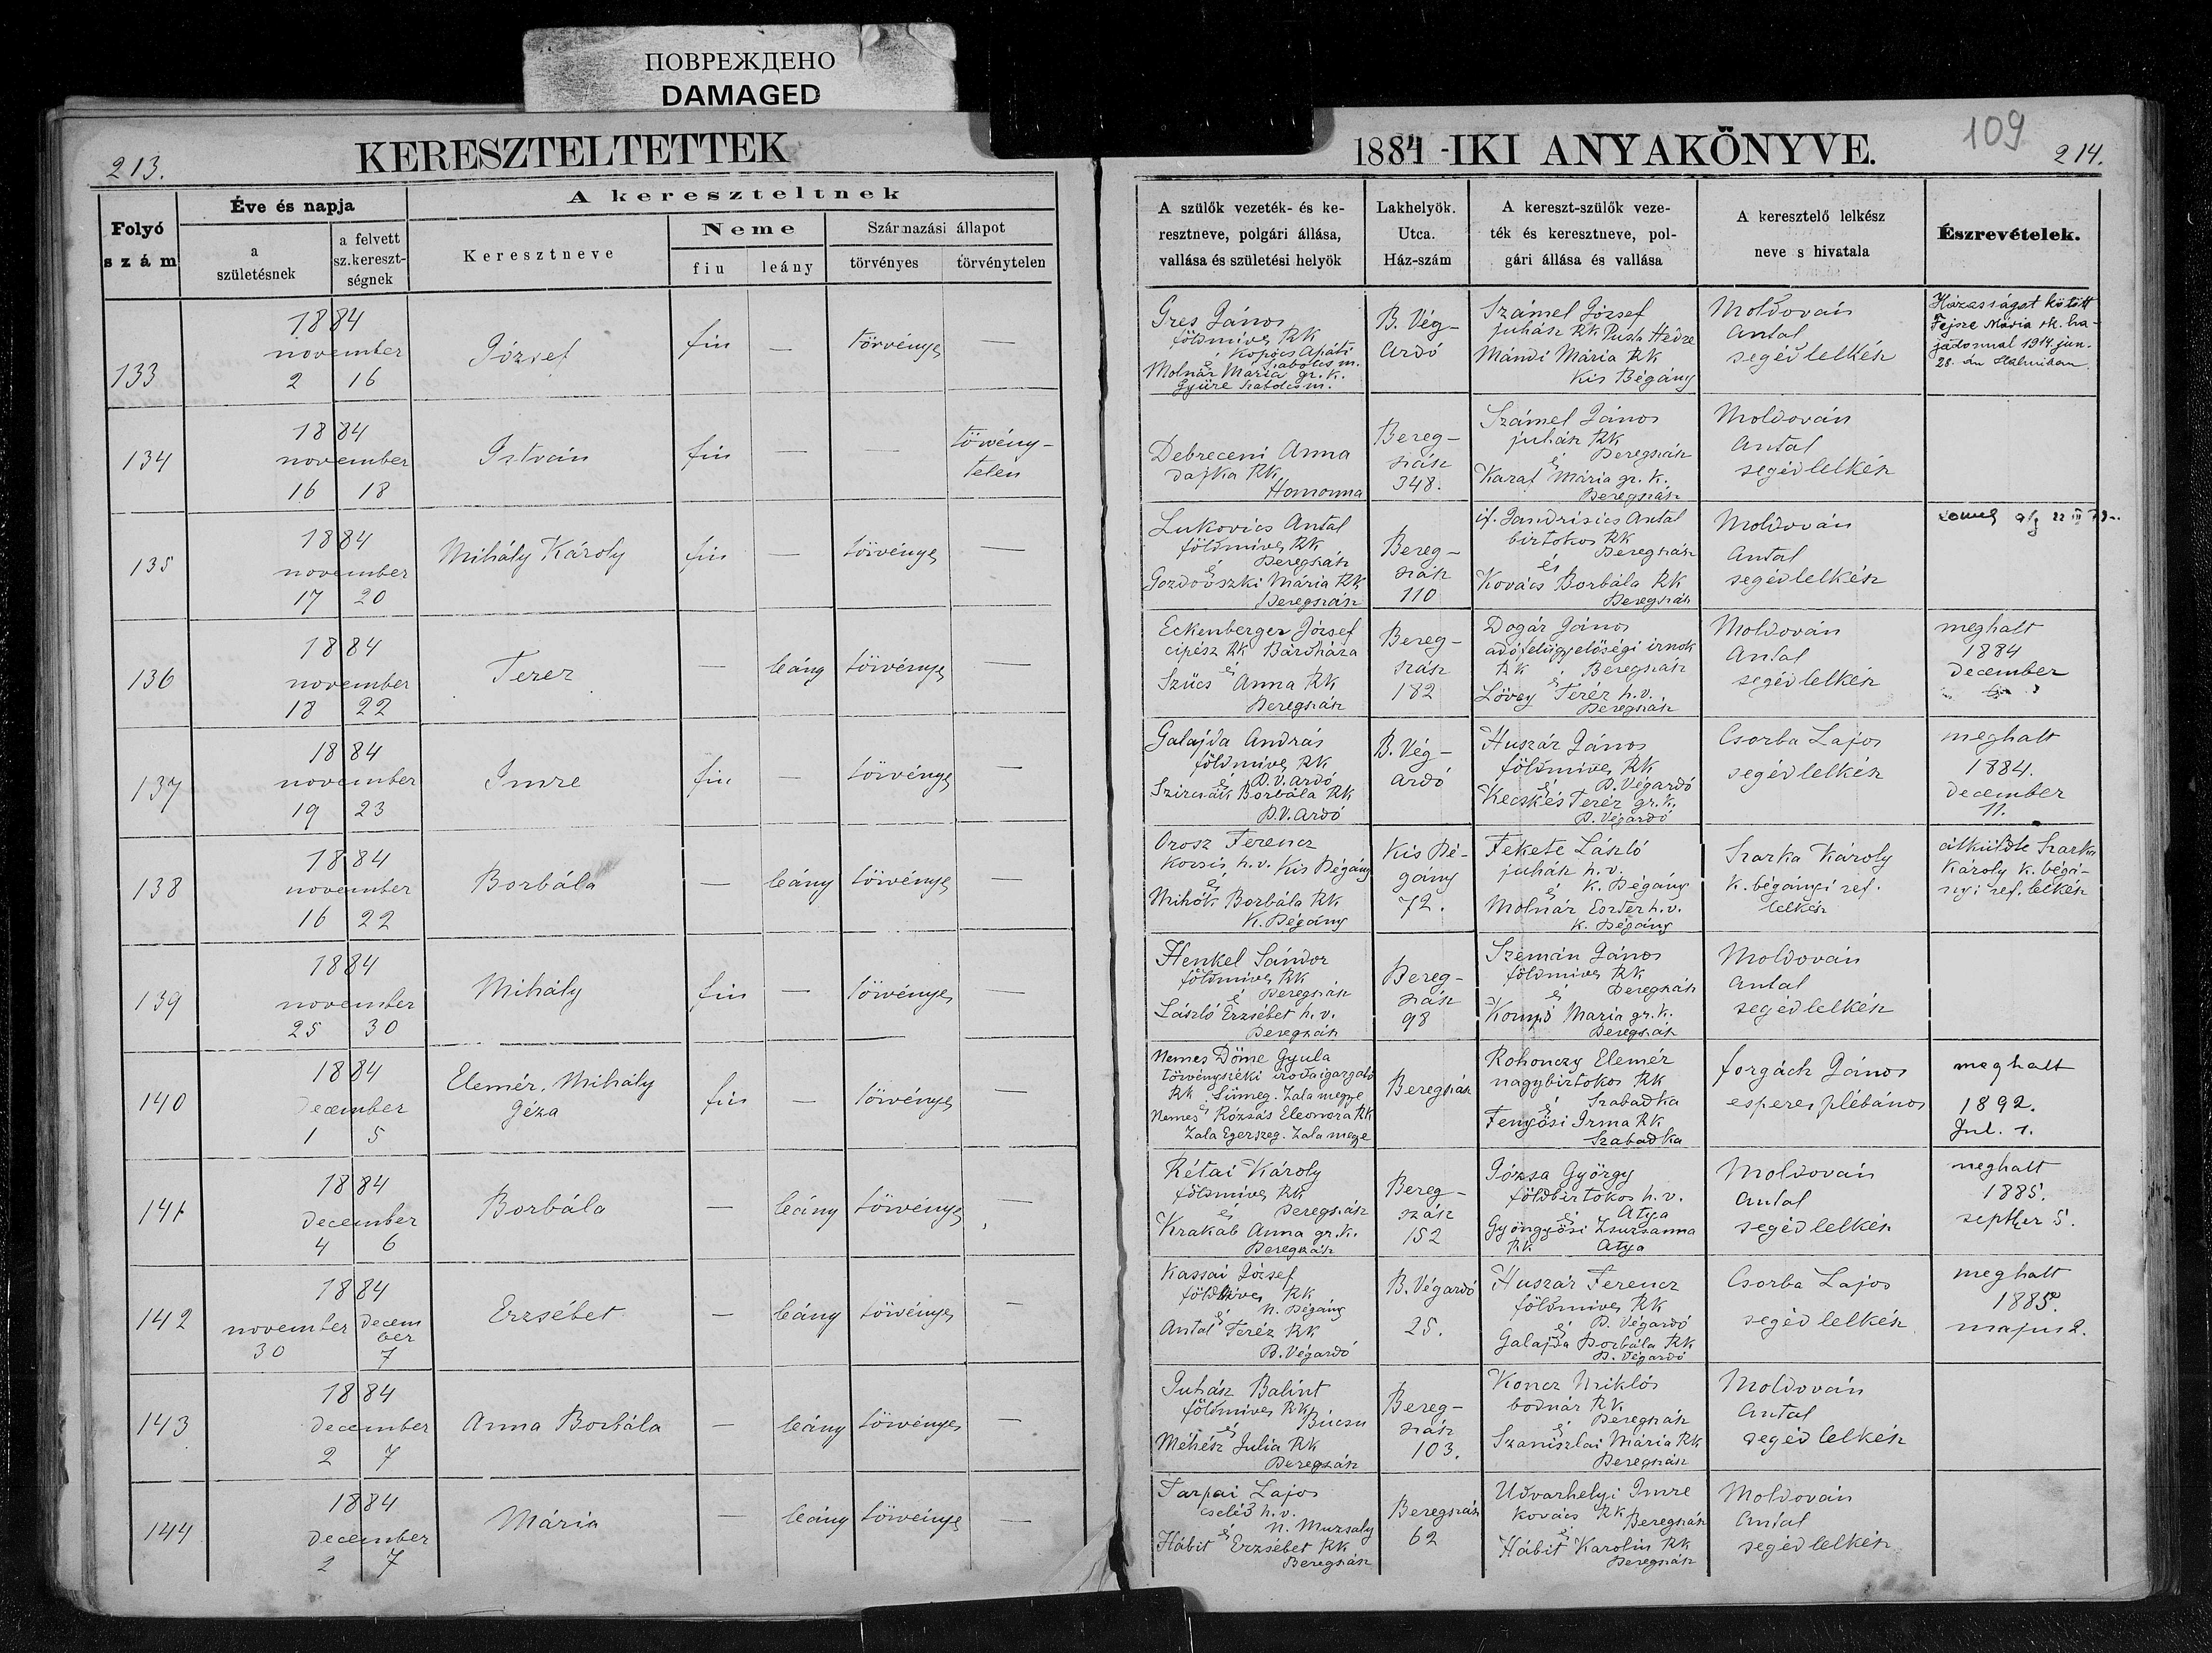 ПОВРЕЖДЕНО
DAMAGED
109
213.
KERESZTELTETTEK
1884-IKI ANYAKÖNYVE.
214.
Folyó
szám
Éve és napja
a
születésnek
a felvett
sz.kereszt-
ségnek
A kereszteltnek
Keresztneve
Neme
fiu
leány
Származási állapot
törvényes
törvénytelen
A szülők vezeték- és ke-
resztneve, polgári állása,
vallása és születési helyök
Lakhelyök.
Utca.
Ház-szám
A kereszt-szülők veze-
ték és keresztneve, pol-
gári állása és vallása
A keresztelő lelkész
neve s hivatala
Észrevételek.
133
1884
november
2 16
József
fiu
—
törvényes
—
Gres János
földmives RK
Kopócs Apáti
és Szabolcs m.
Molnár Maria gr. k.
Gyüre Szabolcs m.
B. Vég-
Ardó
Számel József
juhász RK Puszta Hedre
Mándi Mária RK
Kis Bégány
Moldován
Antal
segédlelkész
Házasságot kötött
Fejsze Mária rk. ha-
jadonnal 1914. jun.
28.-án Halmiban.
134
1884
november
16 18
István
fiu
—
—
törvény-
telen
Debreceni Anna
dajka RK
Homonna
Bereg-
szász
348.
Számel János
juhász RK
és Beregszász
Karaf Mária gr. k.
Beregszász
Moldován
Antal
segédlelkész
135
1884
november
17 20
Mihály Károly
fiu
—
törvényes
—
Lukovics Antal
földmives RK
és Beregszász
Gozdovszki Mária RK
Beregszász
Bereg-
szász
110
if. Jandrisics Antal
birtokos RK
Beregszász
és
Kovács Borbála RK
Beregszász
Moldován
Antal
segédlelkész
136
1884
november
18 22
Terez
—
leány
törvényes
—
Eckenberger József
cipész RK Báróháza
és
Szücs Anna RK
Beregszász
Bereg-
szász
182
Dogár János
adófelügyelőségi irnok
RK Beregszász
és
Lövey Teréz h. v.
Beregszász
Moldován
Antal
segédlelkész
meghalt
1884
december
137
1884
november
19 23
Imre
fiu
—
törvényes
—
Galajda András
földmives RK
és B. V. Ardó
Szirmák Borbála RK
B. V. Ardó
B. Vég-
ardó
Huszár János
földmives RK
és B. Végardó
Kecskés Teréz gr. k.
B. Végardó
Csorba Lajos
segédlelkész
meghalt
1884.
december
11.
138
1884
november
16 22
Borbála
—
leány
törvényes
—
Orosz Ferencz
kocsis h. v. Kis Bégány
és
Mihók Borbála RK
K. Bégány
Kis Bé-
gány
72.
Fekete László
juhász h. v.
és K. Bégány
Molnár Eszter h. v.
K. Bégány
Szarka Károly
K. bégányi ref.
lelkész
átküldte Szarka
Károly K. bégá-
nyi ref. lelkész
139
1884
november
25 30
Mihály
fiu
—
törvényes
—
Henkel Sándor
földmives RK
és Beregszász
László Erzsébet h. v.
Beregszász
Bereg-
szász
98
Szemán János
földmives RK
és Beregszász
Kompó Maria gr. k.
Beregszász
Moldován
Antal
segédlelkész
140
1884
December
1 5
Elemér. Mihály
Géza
fiu
—
törvényes
—
Nemes Döme Gyula
törvényszéki irodaigazgató
RK Sümeg. Zala megye
és
Nemes Rózsás Eleonora RK
Zala Egerszeg. Zala megye
Beregszász
Rohonczy Elemér
nagybirtokos RK
és Szabadka
Fenyősi Irma RK
Szabadka
Forgách János
esperes plébános
meghalt
1892.
Jul. 1.
141
1884
December
4 6
Borbála
—
leány
törvényes
—
Rétai Károly
földmives RK
és Beregszász
Krakab Anna gr. k.
Beregszász
Bereg-
szász
152
Józsa György
földbirtokos h. v.
és Atya
Gyöngyösi Zsuzsanna
RK Atya
Moldován
Antal
segédlelkész
meghalt
1885.
septber 5.
142
1884
november Decem
ber
30 7
Erzsébet
—
leány
törvényes
—
Kassai József
földmives RK
és N. Bégány
Antal Teréz RK
B. Végardó
B. Végardó
25.
Huszár Ferencz
földmives RK
és B. Végardó
Galajda Borbála RK
B. Végardó
Csorba Lajos
segédlelkész
meghalt
1885.
majus 2.
143
1884
December
2 7
Anna Borbála
—
leány
törvényes
—
Juhász Balint
földmives RK
és Búcsu
Méhész Julia RK
Beregszász
Bereg-
szász
103.
Koncz Miklós
bodnár RK
és Beregszász
Szaniszlai Mária RK
Beregszász
Moldován
Antal
segédlelkész
144
1884
December
2 7
Mária
—
leány
törvényes
—
Tarpai Lajos
cseléd h. v.
és N. Muzsaly
Hábit Erzsébet RK
Beregszász
Beregszász
62
Udvarhelyi Imre
kovács RK
és Beregszász
Hábit Karolin RK
Beregszász
Moldován
Antal
segédlelkész